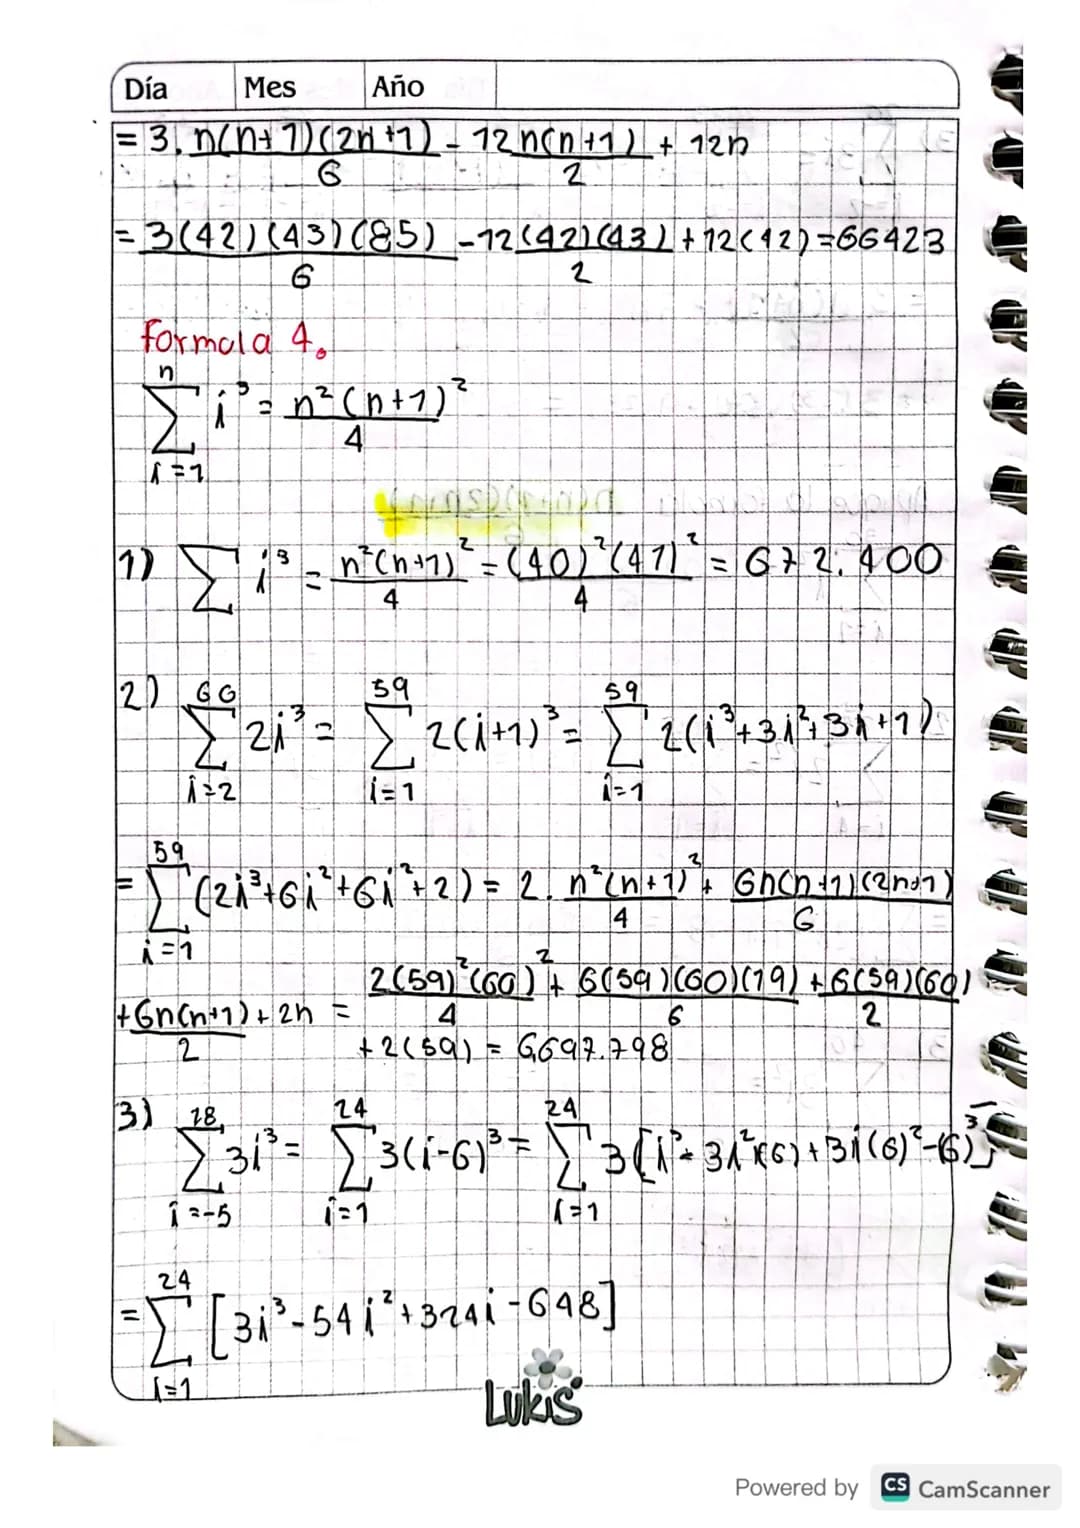 Día Mes Año
= 3. n(n+1)(2n+1)/6 - 12n(n+1)/2 + 12n
= 3(42)(43)(85)/6 - 12(42)(43)/2 + 12(42) = 66423
formula 4.
n∑i=1 i³ = n²(n+1)²/4
1) ∑ i³ = n²(n+1)²/4 = (40)²(41)²/4 = 672.400
2) 60∑i=2 2i³ = 59∑i=1 2(i+1)³ = 59∑i=1 2(i³+3i²+3i+1)
= 59∑i=1 (2i³+6i²+6i²+2) = 2. n²(n+1)²/4 + 6n(n+1)(2n+1)/6
+6n(n+1)/2 + 2n = 2(59)²(60)²/4 + 6(59)(60)(19)/6 + 6(59)(60)/2
+2(59) = 6,697.798
3) 18∑i=-5 3i³ = 24∑i=1 3(i-6)³ = 24∑i=1 3[i³-3i²(6)+3i(6)²-(6)³]
= 24∑i=1 [3i³-54i²+324i-648]
Lukis
Powered by CS CamScanner